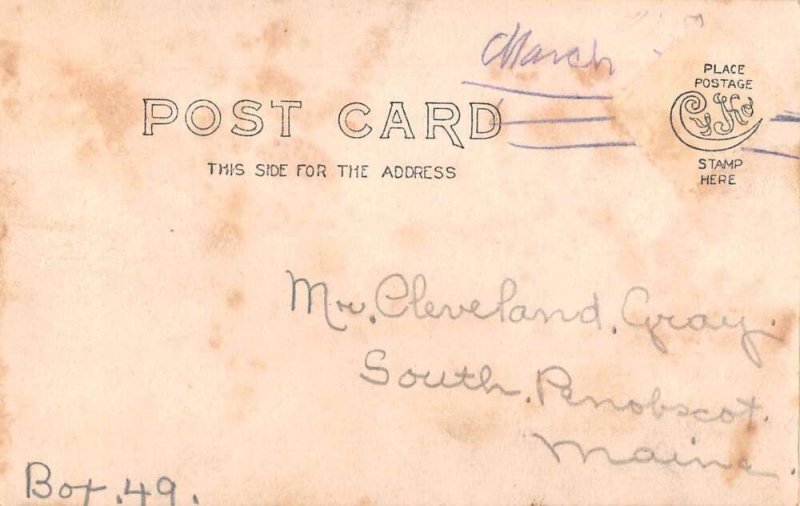 March
PLACE
POSTAGE
CyKo
STAMP
HERE
POST CARD
THIS SIDE FOR THE ADDRESS
Mr. Cleveland. Gray.
South. Penobscot.
Maine.
Box. 49.